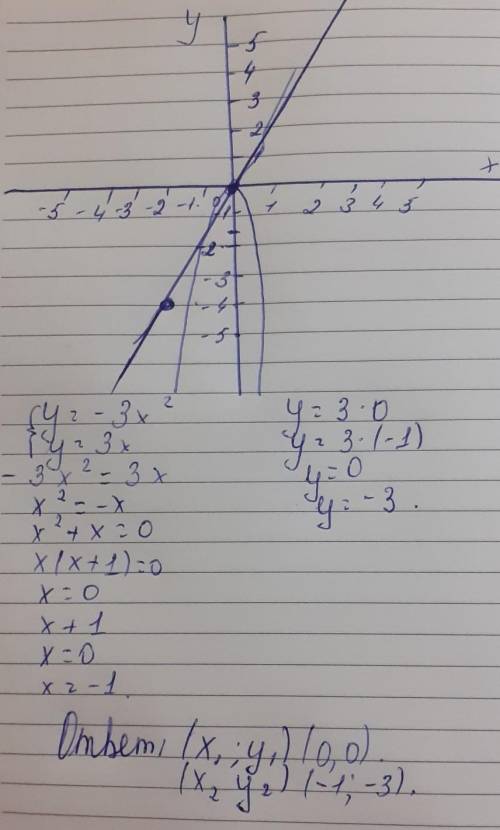 y
5
4
3
2
x
-5 -4 -3 -2 -1 0 1 2 3 4 5
-1
-2
-3
-4
-5
{y = -3x²
y = 3x
-3x² = 3x
x² = -x
x² + x = 0
x(x+1)=0
x = 0
x + 1
x = 0
x = -1.
y = 3 · 0
y = 3 · (-1)
y = 0
y = -3.
Ответ, (x₁; y₁) (0,0).
(x₂ y₂) (-1; -3).